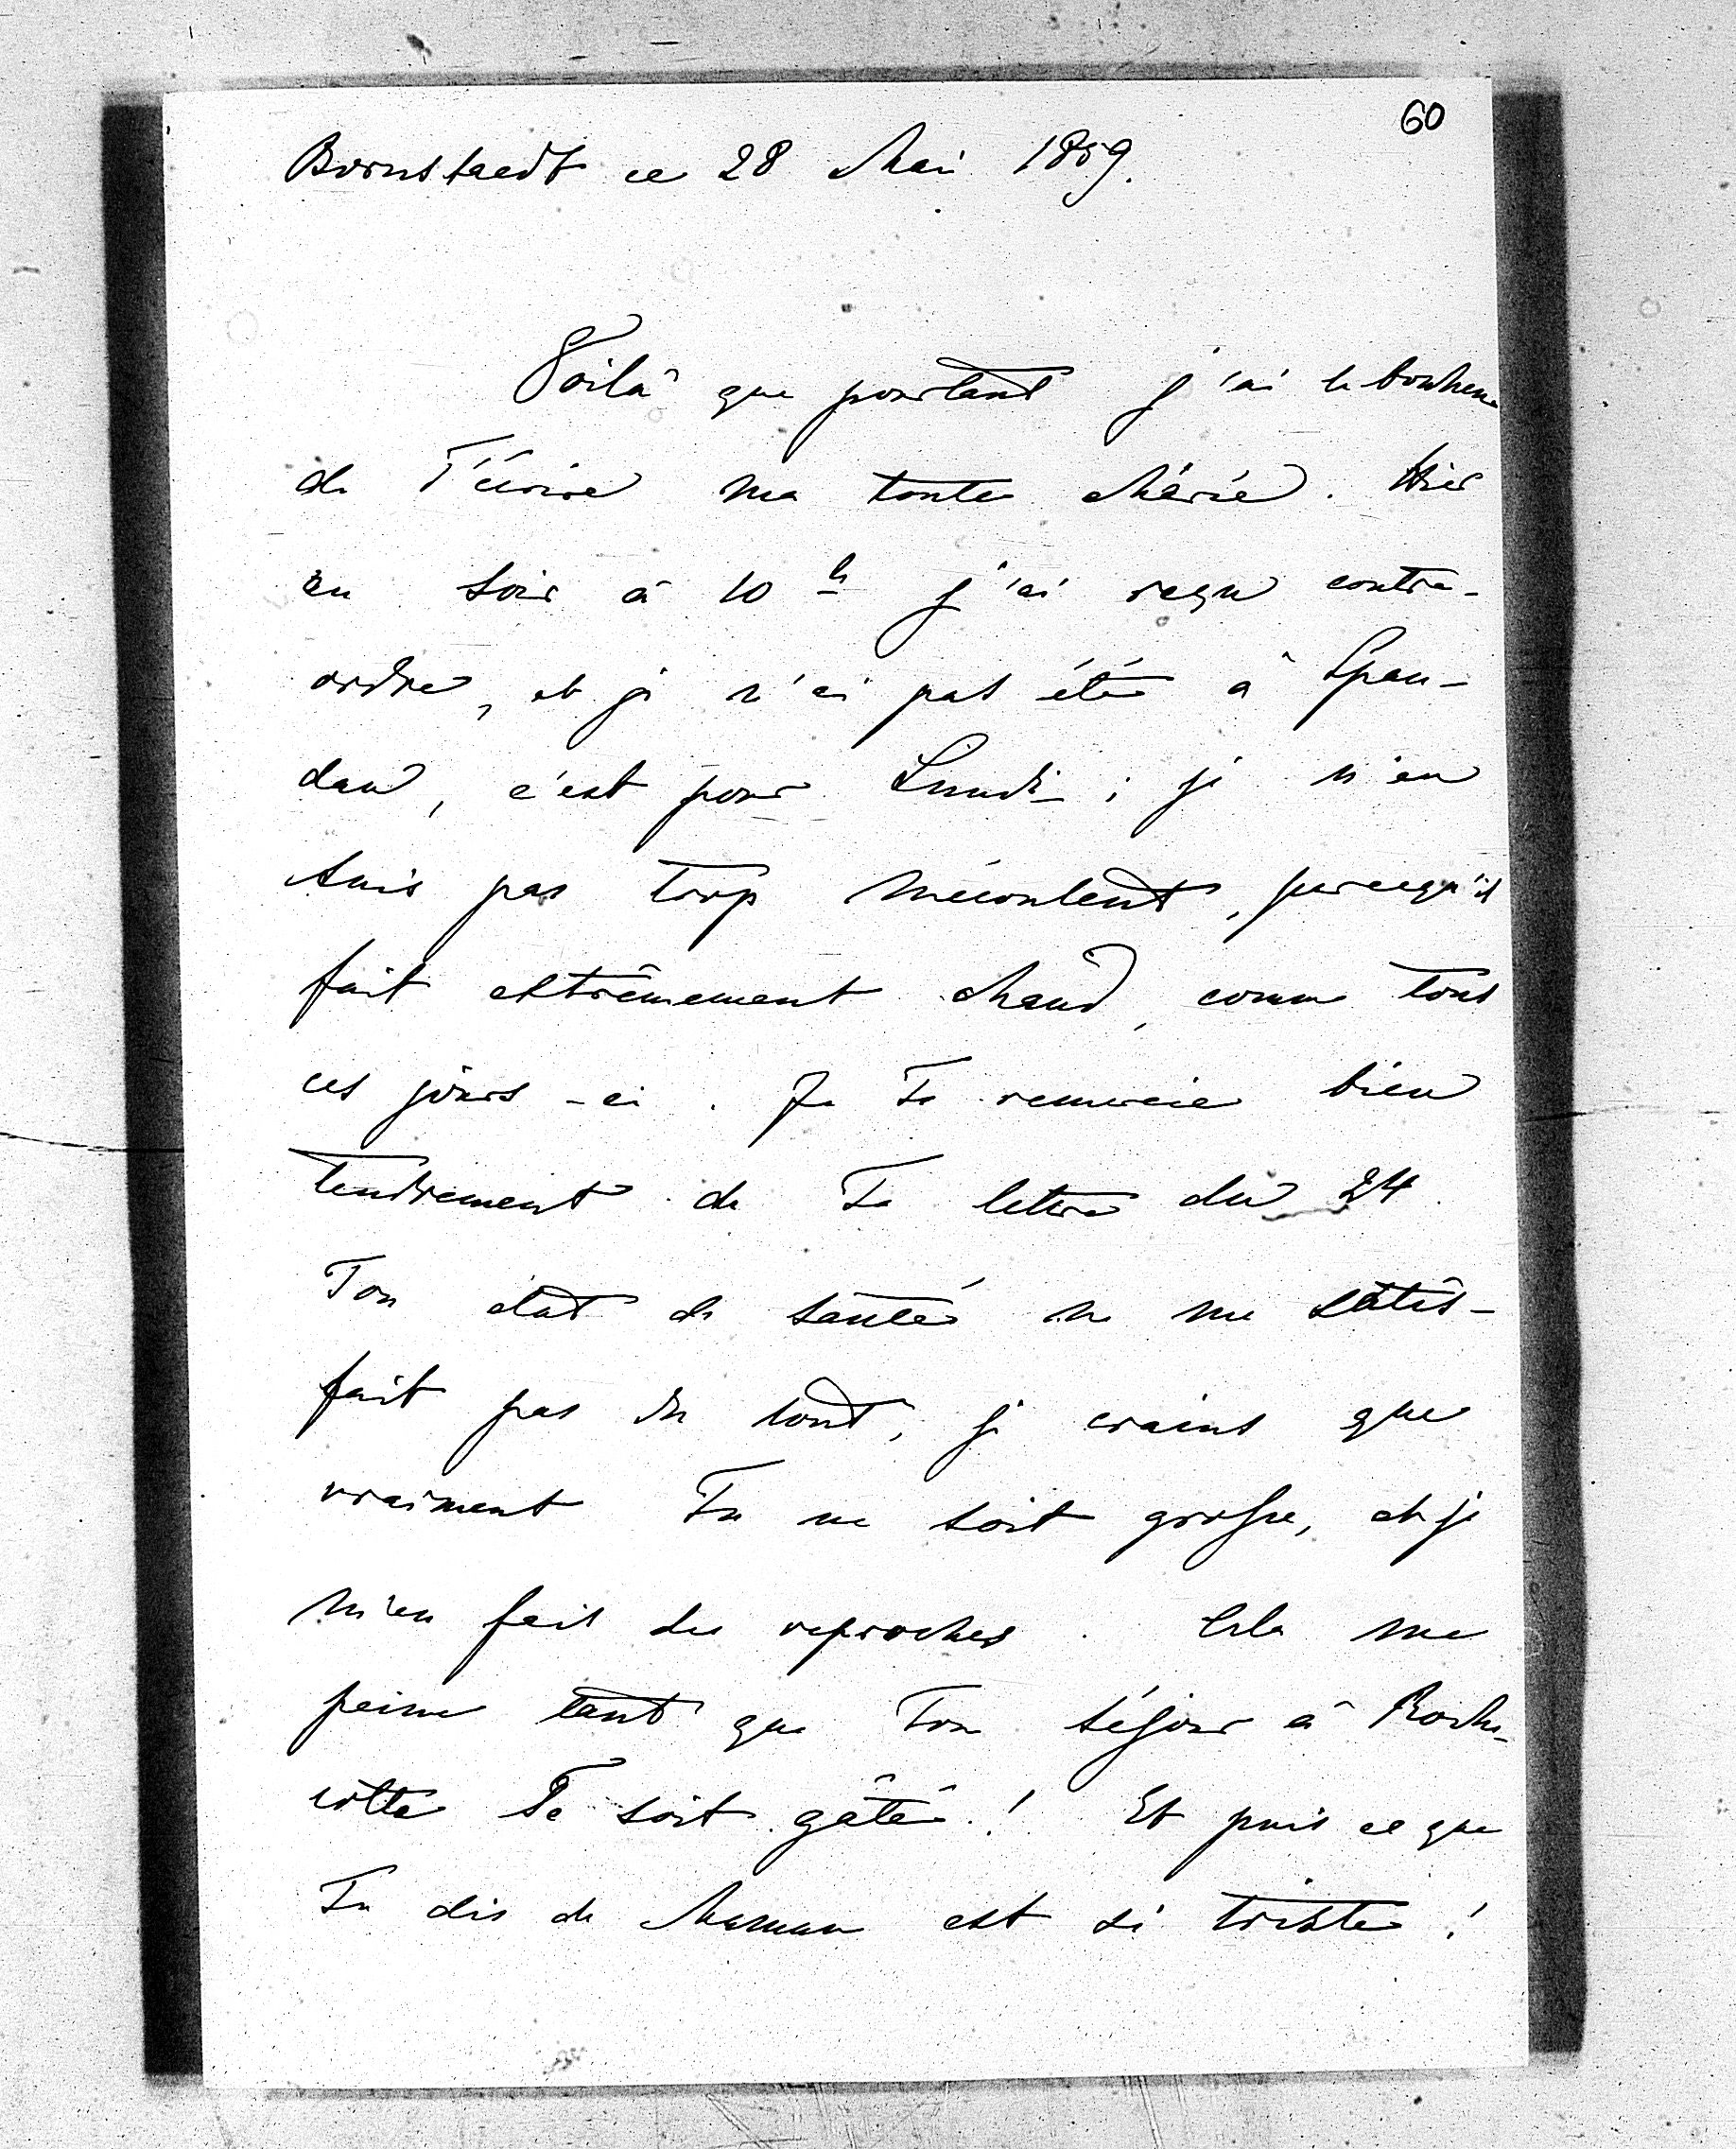 60
Bornstaedt ce 28 Mai 1859.
Voilà que pourtant j'ai le bonheur
de T'écrire ma toute chérie. Hier
au soir à 10 h j'ai reçu contre-
ordre, et je n'ai pas été à Span-
dau, c'est pour Lundi ; je n'en
suis pas trop mécontent, parcequ'il
fait extrêmement chaud, comme tous
ces jours-ci. Je Te remercie bien
tendrement de Ta lettre du 24.
Ton état de santé ne me satis-
fait pas du tout, je crains que
vraiment Tu ne soit grosse, et je
m'en fais des reproches. Cela me
peine tant que Ton séjour à Roche-
cotte Te soit gâté ! Et puis ce que
Tu dis de Maman est si triste !